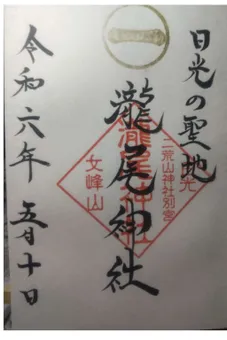 日光の聖地
一
日光
二荒山神社別宮
瀧尾神社
瀧尾神社
女峰山
令和六年 五月十日